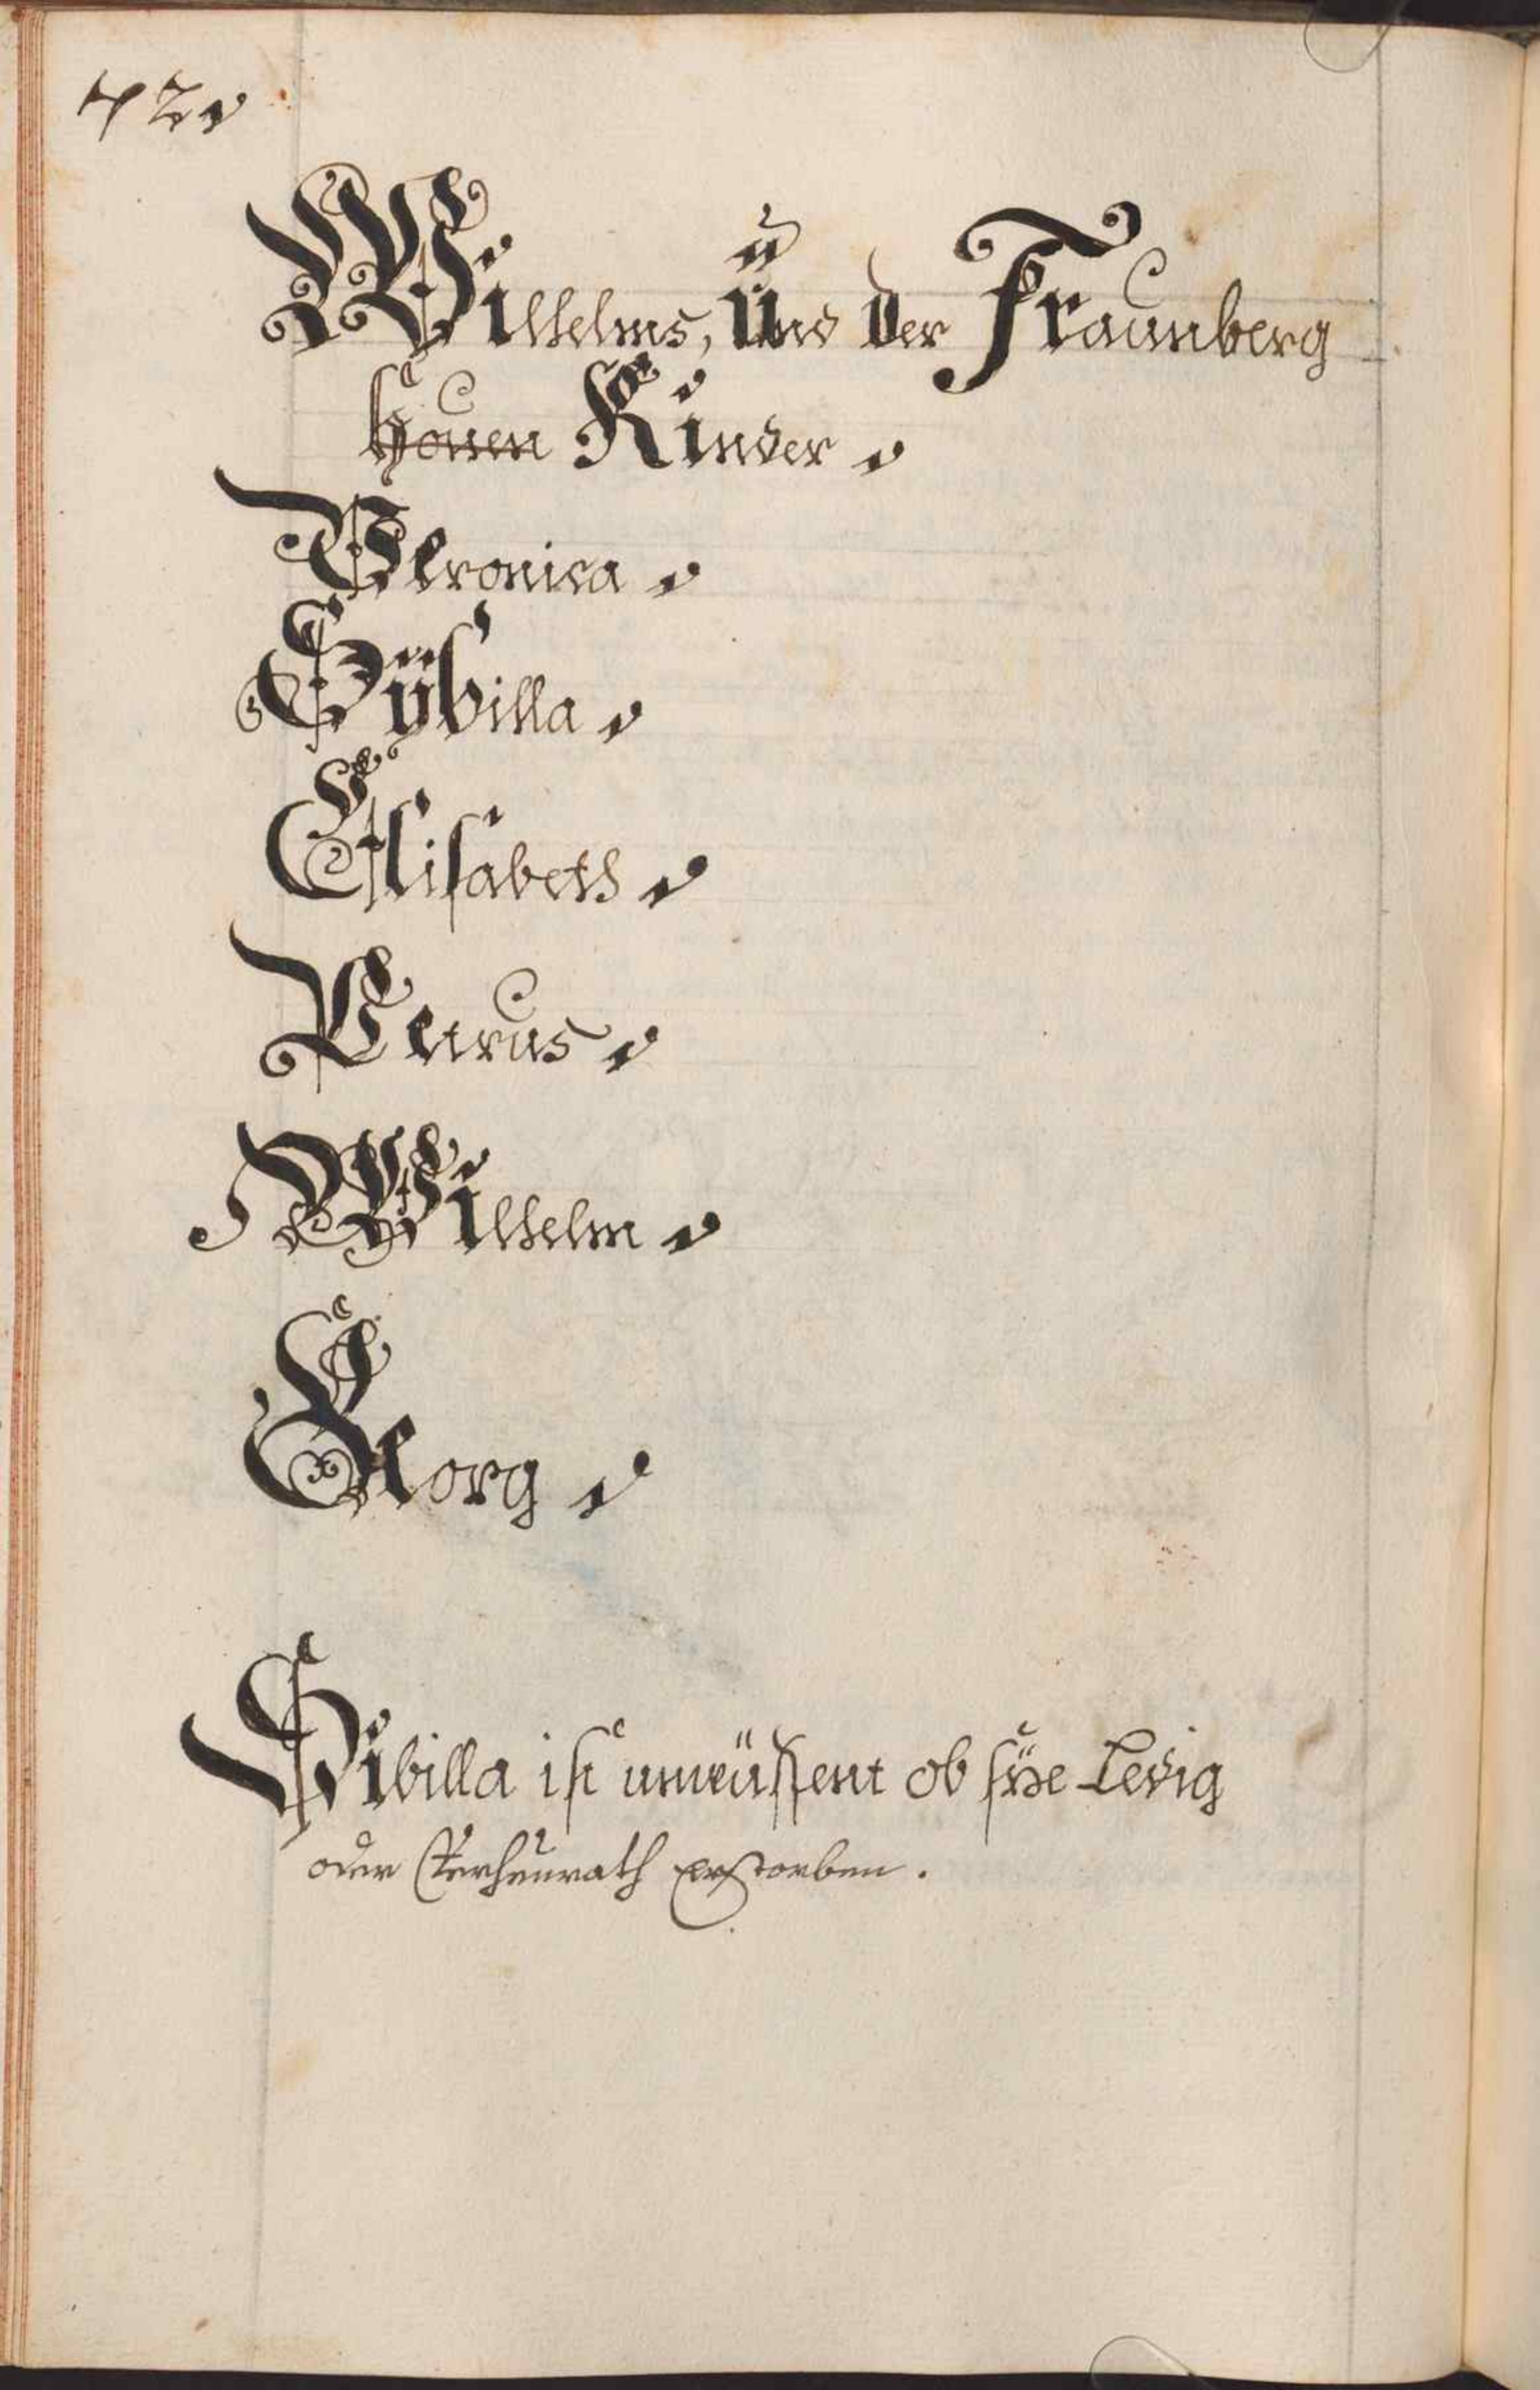 42.
Wilhelms, Und der Fraunberg
houen Kinder.
Veronica.
Sÿbilla.
Elisabeth.
Petrus.
Wilhelm.
Georg.
Sibilla ist unwüssent ob sÿe Ledig
oder Verheürath Erstorben.